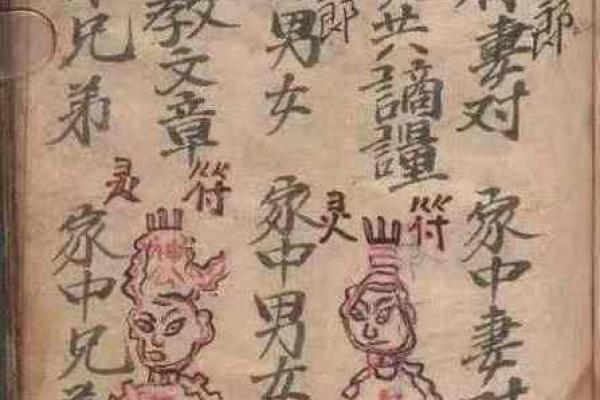 郎
妻对 家中妻对
共謪
符
灵
郎
男女 家中男女
教文章
符
灵
兄弟 家中兄弟